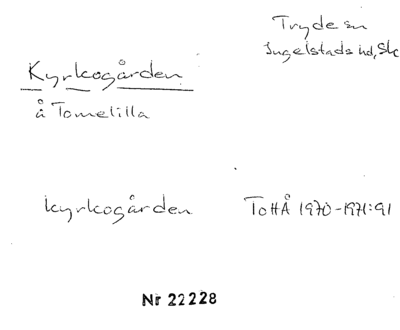 Tryde sn
Ingelstads hd, Sk
Kyrkogården
å Tomelilla
kyrkogården ToHÅ 1970-1971:91
Nr 22228